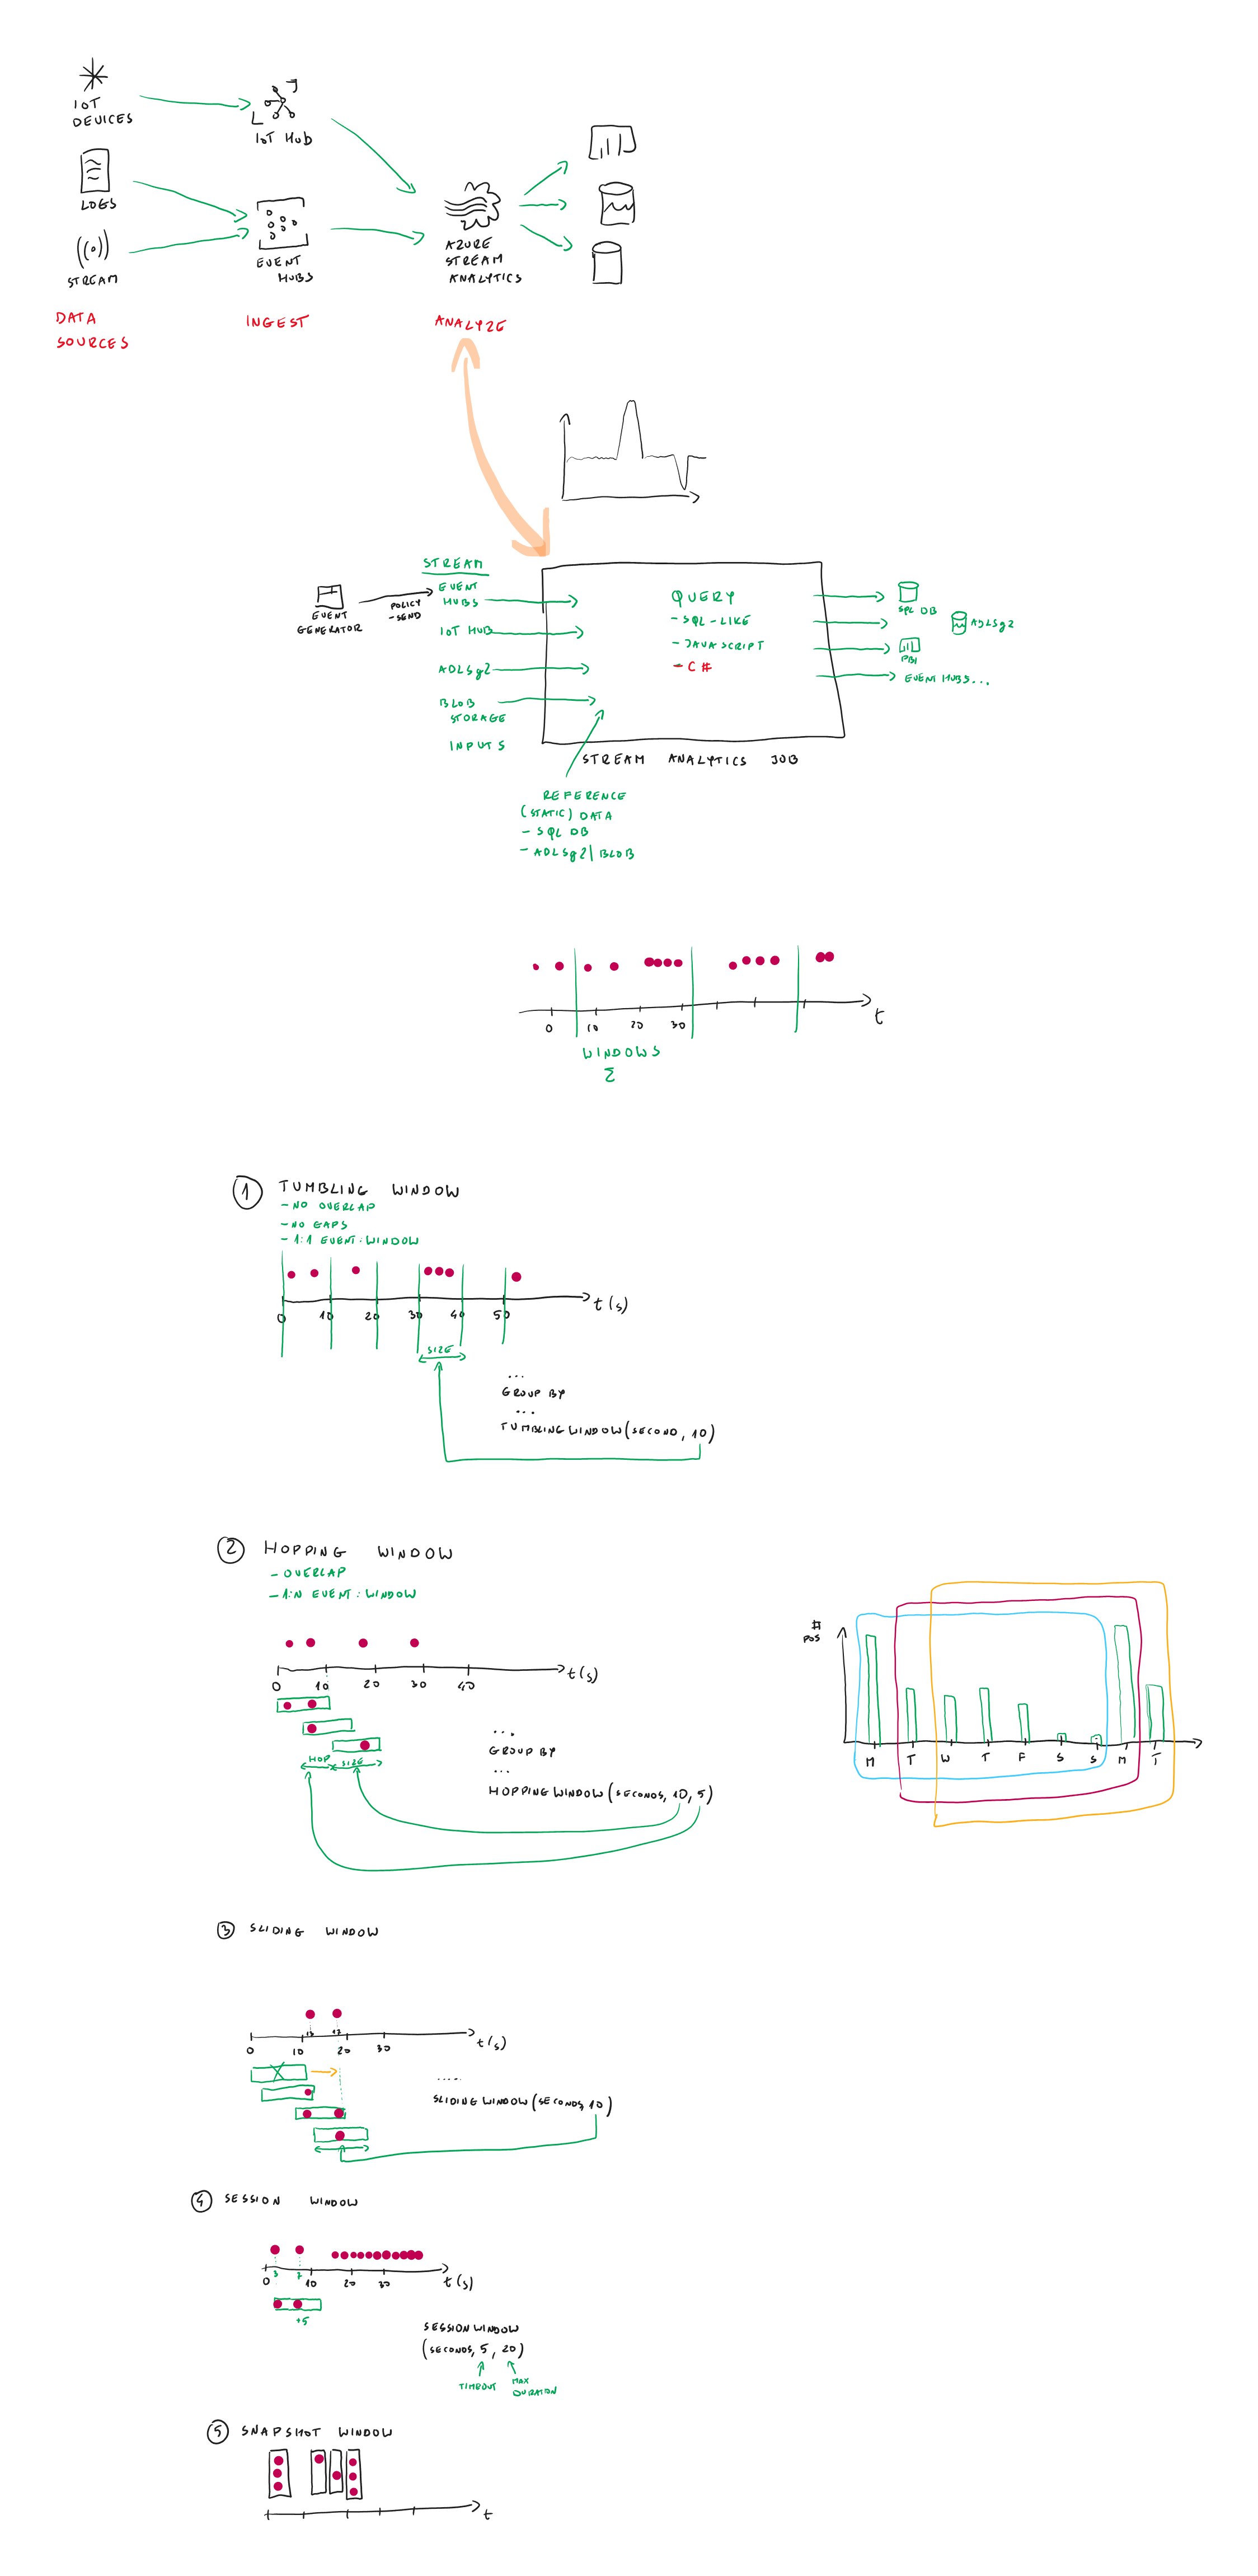 IOT
DEVICES
IOT HUB
LOGS
STREAM
EVENT
HUBS
AZURE
STREAM
ANALYTICS
DATA
SOURCES
INGEST
ANALYZE
STREAM
EVENT
HUBS
IOT HUB
ADLSg2
BLOB
STORAGE
INPUTS
EVENT
GENERATOR
POLICY
-SEND
QUERY
- SQL-LIKE
- JAVASCRIPT
- C#
SQL DB
ADLSg2
PBI
EVENT HUBS...
STREAM ANALYTICS JOB
REFERENCE
(STATIC) DATA
- SQL DB
- ADLSg2|BLOB
0 10 20 30
t
WINDOWS
Σ
1 TUMBLING WINDOW
- NO OVERLAP
- NO GAPS
- 1:1 EVENT:WINDOW
0 10 20 30 40 50
t(s)
SIZE
...
GROUP BY
...
TUMBLINGWINDOW(SECOND, 10)
2 HOPPING WINDOW
- OVERLAP
- 1:N EVENT:WINDOW
0 10 20 30 40
t(s)
HOP SIZE
...
GROUP BY
...
HOPPINGWINDOW(SECONDS, 10, 5)
#
POS
M T W T F S S M T
3 SLIDING WINDOW
13 17
0 10 20 30
t(s)
.....
SLIDINGWINDOW(SECONDS,10)
4 SESSION WINDOW
3 7
0 10 20 30
t(s)
+5
SESSIONWINDOW
(SECONDS, 5, 20)
TIMEOUT
MAX
DURATION
5 SNAPSHOT WINDOW
t